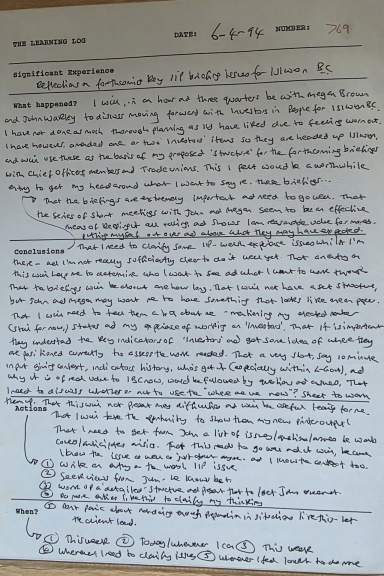 THE LEARNING LOG DATE: 6-4-94 NUMBER: 769
Significant Experience
Reflections on forthcoming key IIP briefing issues for Islwyn BC
What happened? I will, in an hour and three quarters be with Megan Brown
and John Warley to discuss moving forward with Investors in People for Islwyn BC.
I have not done as much thorough planning as I'd have liked due to feeling worn out.
I have however, one or two 'Investors' items so they are headed up Islwyn,
and will use these as the basis of my proposed 'structure' for the forthcoming briefings
with Chief Officers members and Trade unions. This I felt would be a worthwhile
entry to get my head around what I want to say re. these briefings...
That the briefings are extremely important and need to go well. That
the series of short meetings with John and Megan seem to be an effective
means of keeping it all rolling, and shows I am reasonable value for money.
putting myself out over and above what they may have expected.
Conclusions That I need to clarify some IIP issues while I'm
there and I'm not really sufficiently clear to do it well yet. That an entry on
this will help me to determine who I want to see and what I want to work through
That the briefings will be about one hour long. That I will not have a set structure,
but John and Megan may want me to have something that looks like one on paper.
That I will need to tell them a bit about me - mentioning my
states and my experience of working on 'Investors'. That it is important
they understand the key indicators of 'Investors' and get some idea of where they
are positioned currently to assess the work needed. That a very short, say 10 minute
input giving context, indicators, history, who's got it (especially within L-Gov), and
why it is of real value to IBC now, would be followed by questions and answers. That
I need to discuss whether or not to use the "where are we now"? sheet to work
them up. That this will not present any difficulties and will be useful learning for me.
Actions That I will take the opportunity to show them my new
That I need to get from John a list of issues/ he wants
covered/anticipates arising. That this needs to go well and it will, because
I know the issue as well as just about anyone, and I know the context too.
① Write an entry on the IIP issue
② Seek views from Jim. He knows best
③ Work up a detailed structure and present that to/get John
④ Do more entries like this to clarify my thinking
⑤ Don't panic about not doing enough preparation in situations like this - let
the client lead.
When?
① This week ② Today/whenever I can ③ This week
④ Whenever I need to clarify issues ⑤ whenever I feel I ought to do more